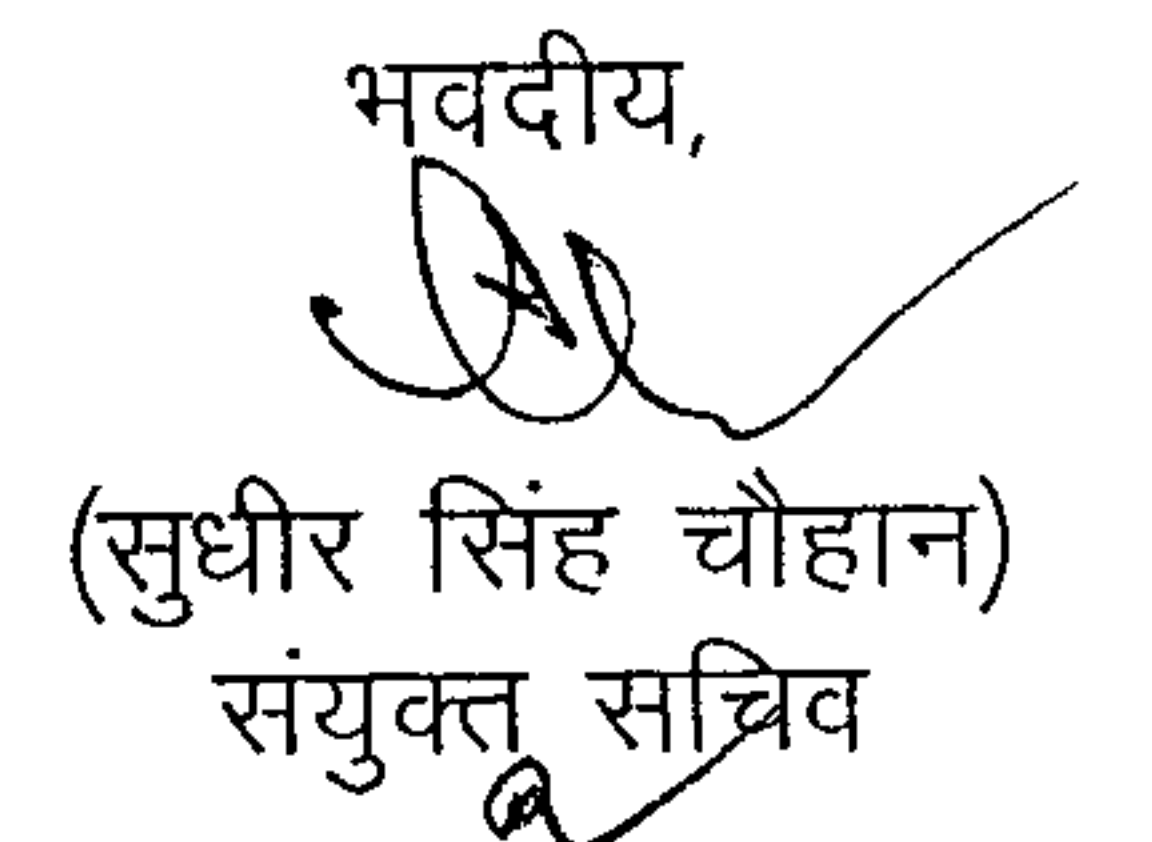 भवदीय,
(सुधीर सिंह चौहान)
संयुक्त सचिव